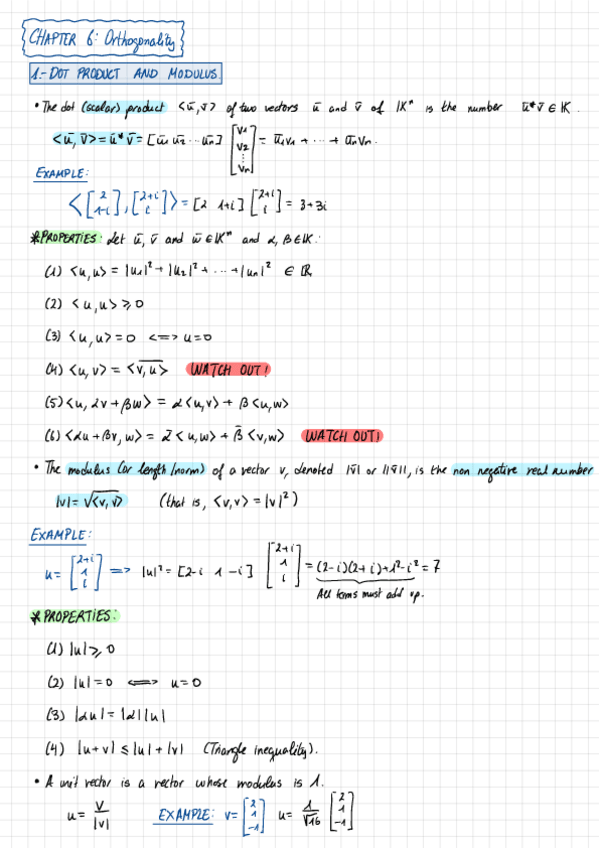 CHAPTER 6: Orthogonality
1.- DOT PRODUCT AND MODULUS
• The dot (scalar) product <ū, v̄> of two vectors ū and v̄ of IKⁿ is the number ū*v̄ ∈ IK.
<ū, v̄> = ū*v̄ = [ū1 ū2 ... ūn] [v1 v2 ⋮ vn] = ū1v1 + ... + ūnvn.
EXAMPLE:
< [2 1-i], [2+i i] > = [2 1+i] [2+i i] = 3+3i
*PROPERTIES: Let ū, v̄ and w̄ ∈ IKⁿ and α, β ∈ IK:
(1) <u,u> = |u1|² + |u2|² + ... + |un|² ∈ ℝ
(2) <u,u> ≥ 0
(3) <u,u> = 0 <=> u=0
(4) <u,v> = <v,u>‾ WATCH OUT!
(5) <u, αv + βw> = α<u,v> + β<u,w>
(6) <αu + βv, w> = ᾱ<u,w> + β̄<v,w> WATCH OUT!
• The modulus (or length/norm) of a vector v, denoted |v̄| or ||v̄||, is the non negative real number
|v| = √<v,v> (that is, <v,v> = |v|²)
EXAMPLE:
u = [2+i 1 i] => |u|² = [2-i 1 -i] [2+i 1 i] = (2-i)(2+i)+1²-i² = 7
All terms must add up.
*PROPERTIES:
(1) |u| ≥ 0
(2) |u| = 0 <=> u=0
(3) |αu| = |α||u|
(4) |u+v| ≤ |u|+|v| (Triangle inequality).
• A unit vector is a vector whose modulus is 1.
u = v/|v| EXAMPLE: v = [2 1 -1] u = 1/√16 [2 1 -1]